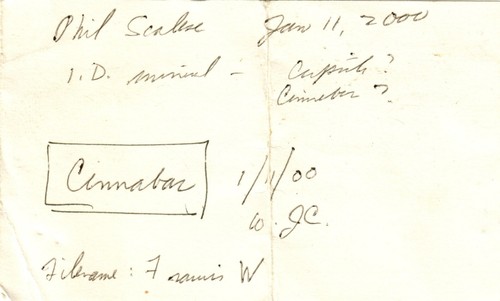 Phil Scalise Jan 11, 2000
I.D. mineral - Cuprite?
Cinnabar?
Cinnabar 1/11/00
W. J.C.
Filename: Francis W